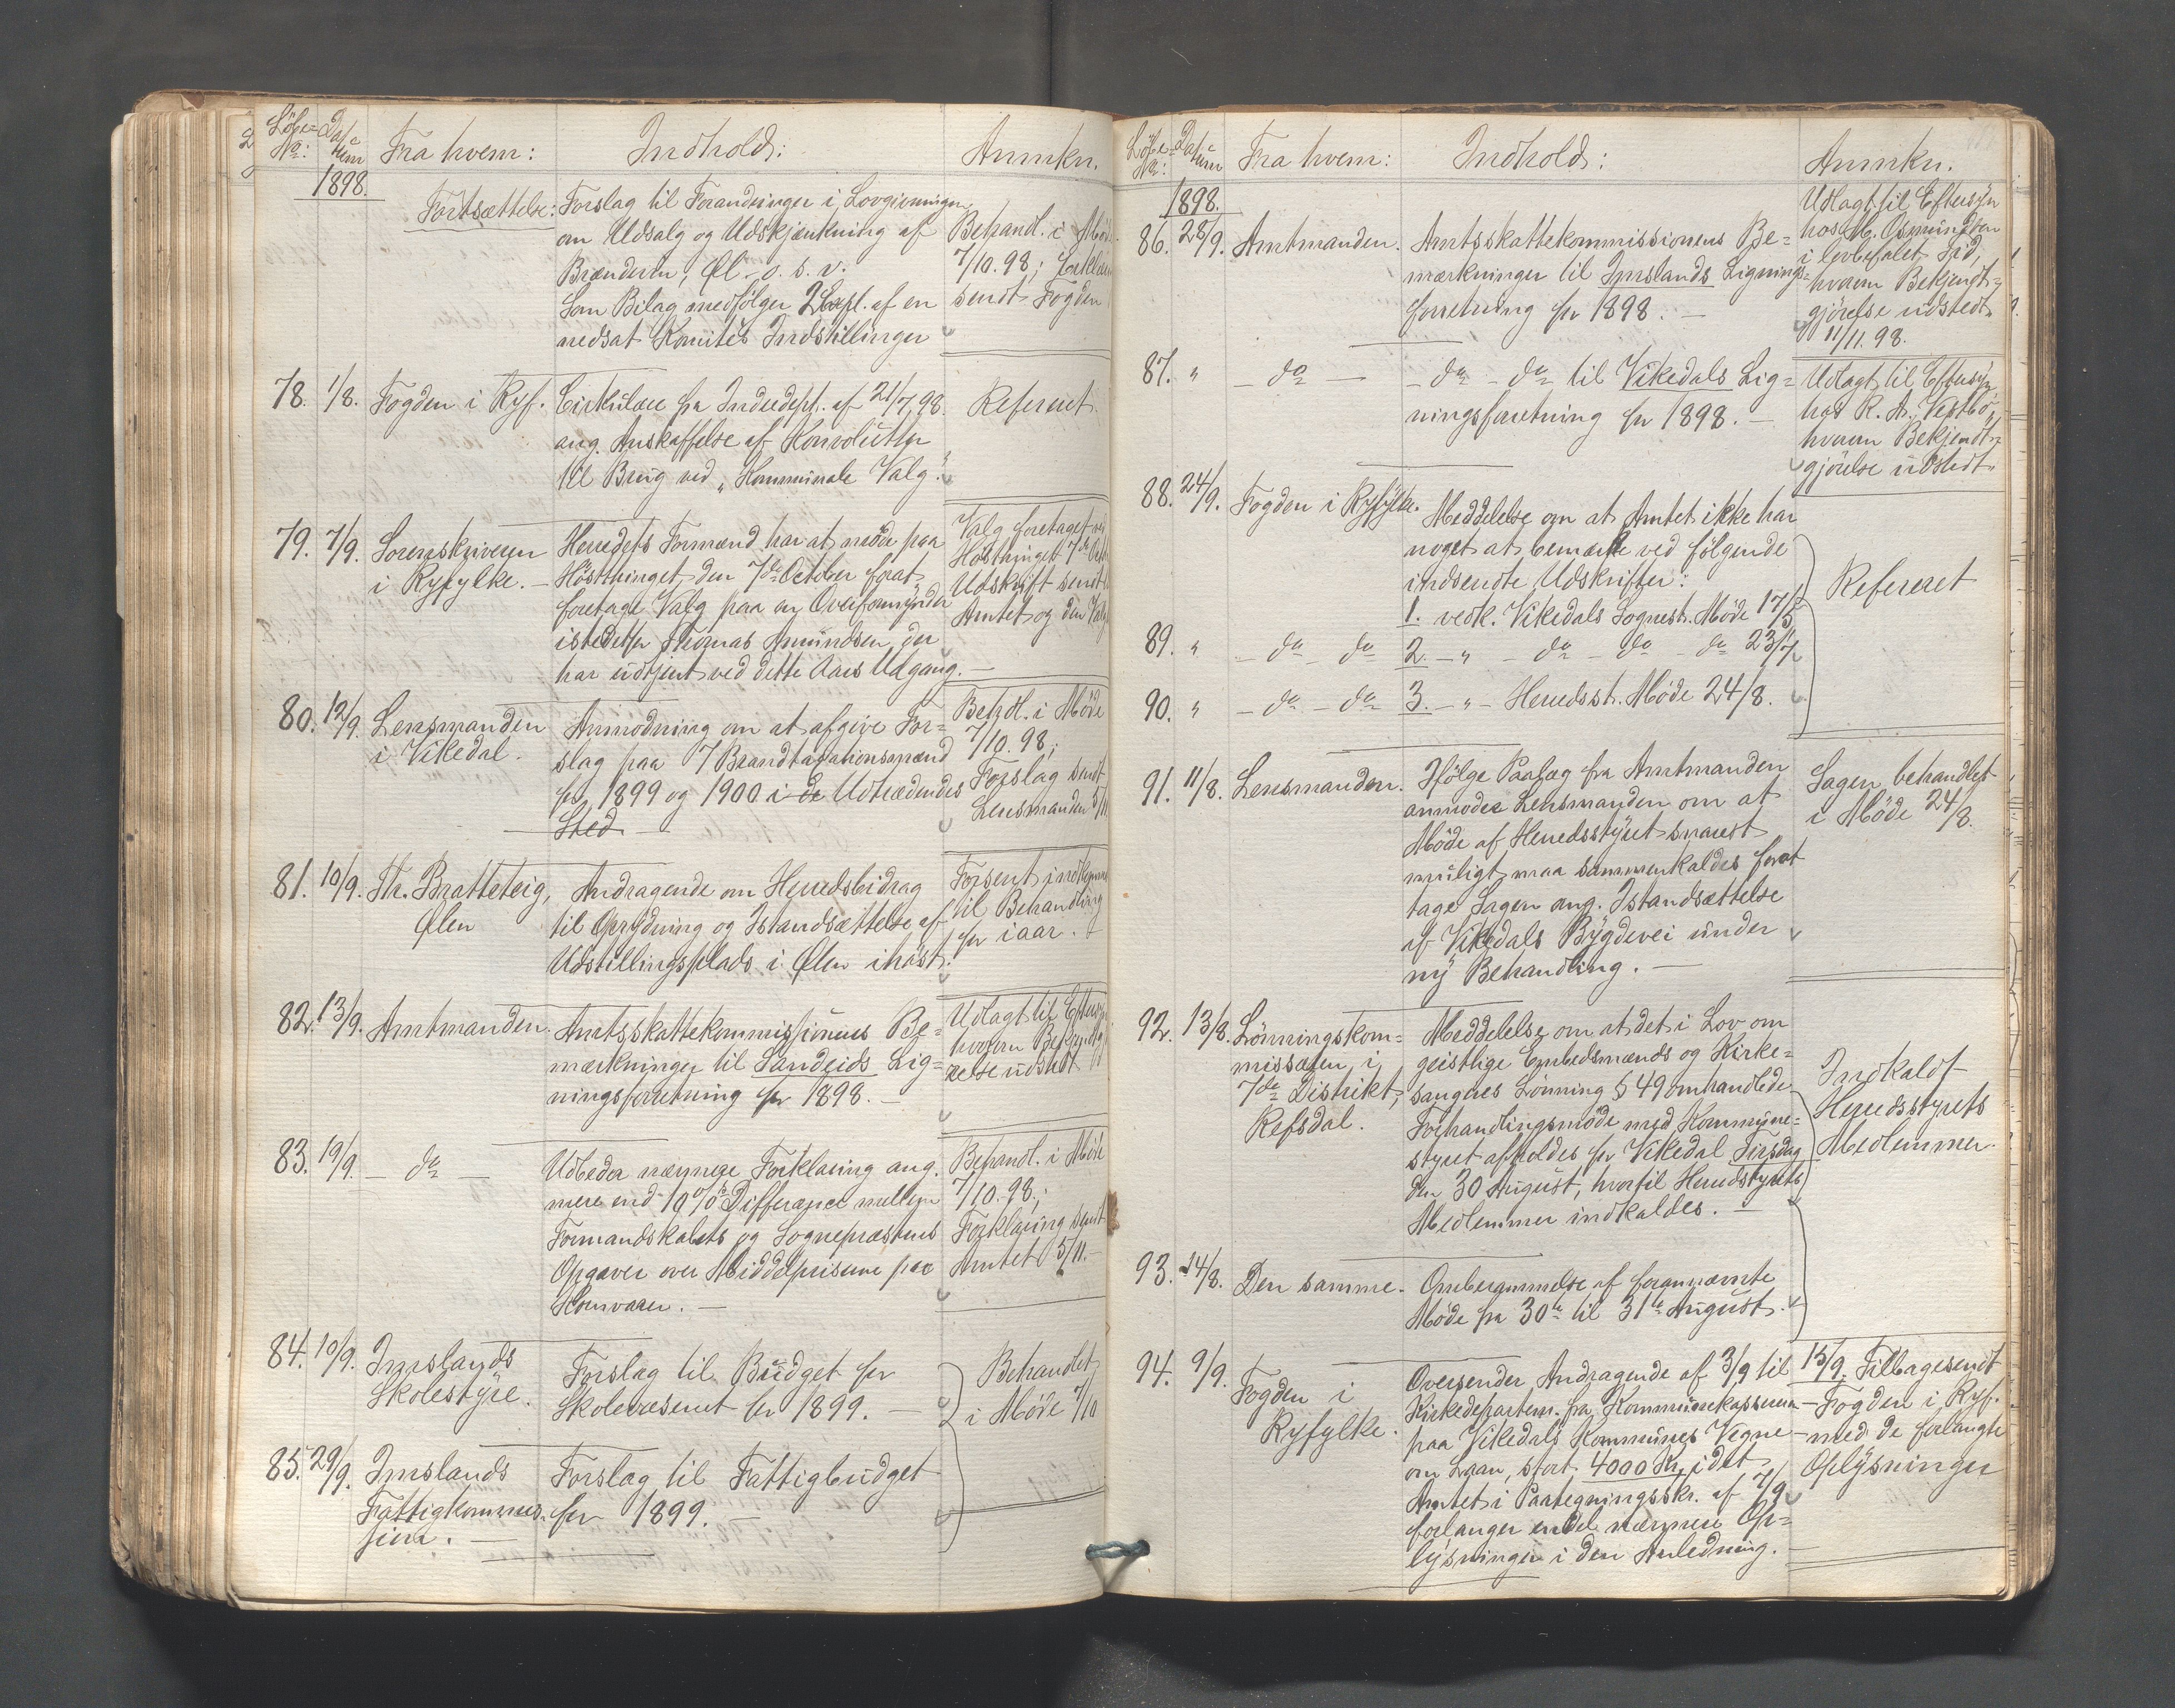 Löbe= Da=
No: tum Fra hvem: Indhold: Anmkn.
1898.
Fortsættelse: Forslag til Forandringer i Lovgivningen
om Udsalg og Udskjænkning af
Brændevin, Øl - o. s. v.
Som Bilag medfölger 2 Expl. af en
nedsat Komites Indstillinger
Behandl. i Möde
7/10. 98; Erklær
sendt Fogden
78. 1/8. Fogden i Ryf. Cirkulære fra Indredept. af 21/7 98.
ang. Anskaffelse af Konvolutter
til Brug ved „Kommunale Valg".
Referert
79. 7/9. Sorenskriveren
i Ryfylke. -
Herredets Formænd har at möde paa
Höstthinget den 7de October forat
foretage Valg paa en Overformynder
istedetfor Thomas Amundsen, der
har udtjent ved dette Aars Udgang. -
Valg foretaget ved
Höstthinget 7de Octb
Udskrift sendt
Amtet og den Valg
80. 12/9. Lensmanden
i Vikedal.
Anmodning om at afgive For=
slag paa 7 Brandtaxationsmænd
for 1899 og 1900 i de Udtrædendes
Sted -
Behdl. i Möde
7/10. 98;
Forslag sendt
Lensmanden 5/11
81. 10/9. Th. Bratteteig,
Ølen
Andragende om Herredsbidrag
til Oprydning og Istandsættelse af
Udstillingsplads i Ølen ihöst.
Forsent indkommet
til Behandling
for iaar.
82. 13/9. Amtmanden.
Amtsskattekommissionens Be=
mærkninger til Sandeids Lig=
ningsforretning for 1898. -
Udlagt til Eftersyn
hvorom Bekjendtgj
relse udstedt
83. 19/9. - do -
Udbeder nærmere Forklaring ang.
mere end 10% Differance mellem
Formandskabets og Sognepræstens
Opgaver over Middelpriserne paa
Kornvarer. -
Behandl. i Möde
7/10. 98;
Forklaring sendt
Amtet 5/11. -
84. 10/9. Imslands
Skolestyre.
Forslag til Budget for
Skolevæsenet for 1899. -
Behandlet
i Möde 7/10
85. 29/9. Imslands
Fattigkommis=
sion. -
Forslag til Fattigbudget
for 1899. -
Löbe= Da=
No: tum Fra hvem: Indhold: Anmkn.
1898.
86. 28/9. Amtmanden.
Amtsskattekommissionens Be=
mærkninger til Imslands Lignings=
forretning for 1898. -
Udlagt til Eftersyn
hos M. Osmundsen
i lovbefalet Tid,
hvorom Bekjendt=
gjörelse udstedt
11/11. 98.
87. " - do -
- do - do til Vikedals Lig=
ningsforretning for 1898. -
Udlagt til Eftersyn
hos R. A. Vestbö,
hvorom Bekjendt=
gjörelse udstedt.
88. 24/9. Fogden i Ryfylke.
Meddelelse om at Amtet ikke har
noget at bemærke ved følgende
indsendte Udskrifter:
1. vedk. Vikedals Sognest. Möde 17/5
89. " - do - do 2. - " - do - do - do 23/7
90. " - do - do 3. - " - Herredsst. Möde 24/8.
Refereret
91. 11/8. Lensmanden.
Ifölge Paalæg fra Amtmanden
anmoder Lensmanden om at
Möde af Herredsstyret snarest
muligt maa sammenkaldes forat
tage Sagen ang. Istandsættelse
af Vikedals Bygdevei under
ny Behandling. -
Sagen behandlet
i Möde 24/8.
92. 13/8. Lönningskom=
missæren i
7de Distrikt,
Refsdal.
Meddelelse om at det i Lov om
geistlige Embedsmænds og Kirke=
sangeres Lönning § 49 omhandlede
Forhandlingsmöde med Kommune=
styret afholdes for Vikedal Tirsdag
den 30 August, hvortil Herredstyrets
Medlemmer indkaldes. -
Indkaldt
Herredsstyrets
Medlemmer.
93. 14/8. Den samme.
Omberammelse af forannævnte
Möde fra 30te til 31te August.
94. 9/9. Fogden i
Ryfylke.
Oversender Andragende af 3/9 til
Kirkedepartem. fra Kommunekassereren
paa Vikedals Kommunes Vegne
om Laan, stort 4000 Kr, idet
Amtet i Paategningsskr. af 7/9
forlanger endel nærmere Op=
lysninger i den Anledning. -
15/9. Tilbagesendt
Fogden i Ryf.
med de forlangte
Oplysninger